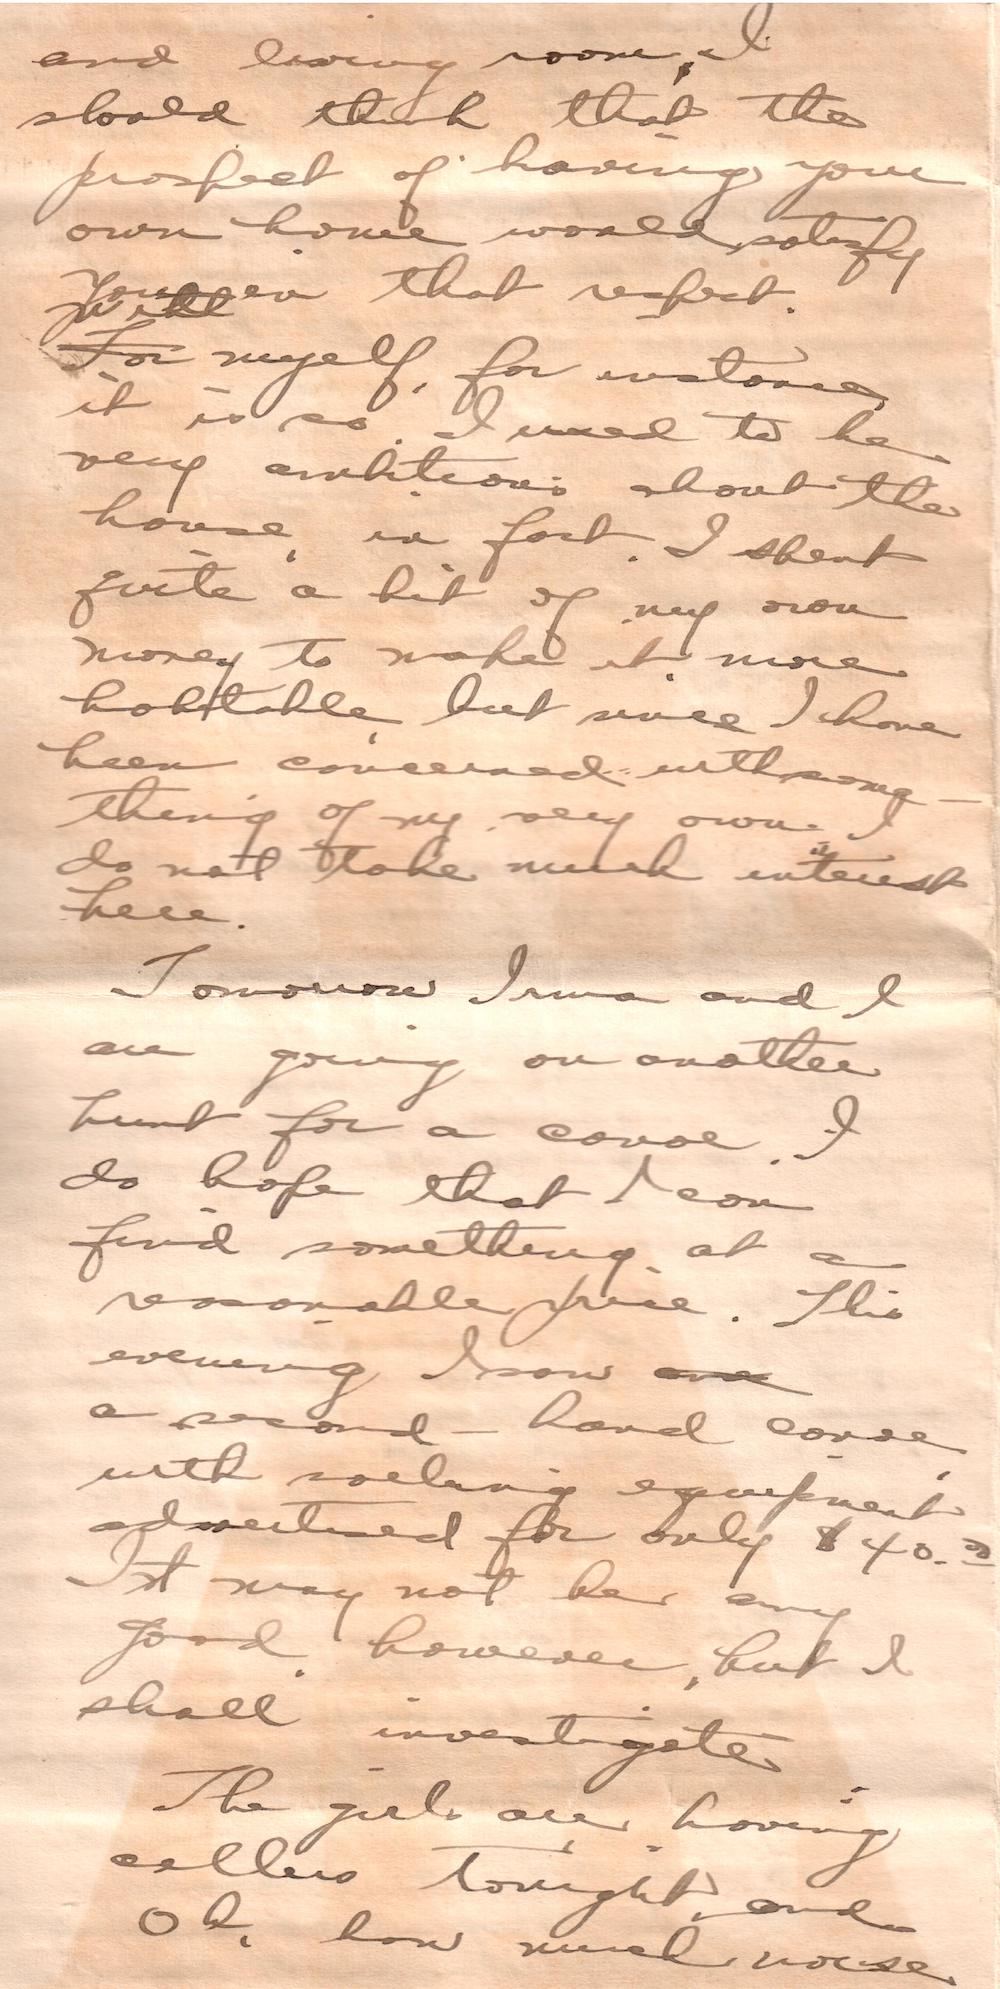 and living room, I
should think that the
prospect of having your
own home would satisfy
you in that respect.
With
For myself, for instance,
it is so. I used to be
very ambitious about the
house, in fact, I spent
quite a bit of my own
money to make it more
habitable, but since I have
been concerned with some-
thing of my very own I
do not take much interest
here.
Tomorrow Irma and I
are going on another
hunt for a canoe. I
do hope that I can
find something at a
reasonable price. This
evening I saw
a second-hand canoe,
with sailing equipment
advertised for only $40.00
It may not be any
good however, but I
shall investigate
The girls are having
callers tonight, and
Oh, how much noise